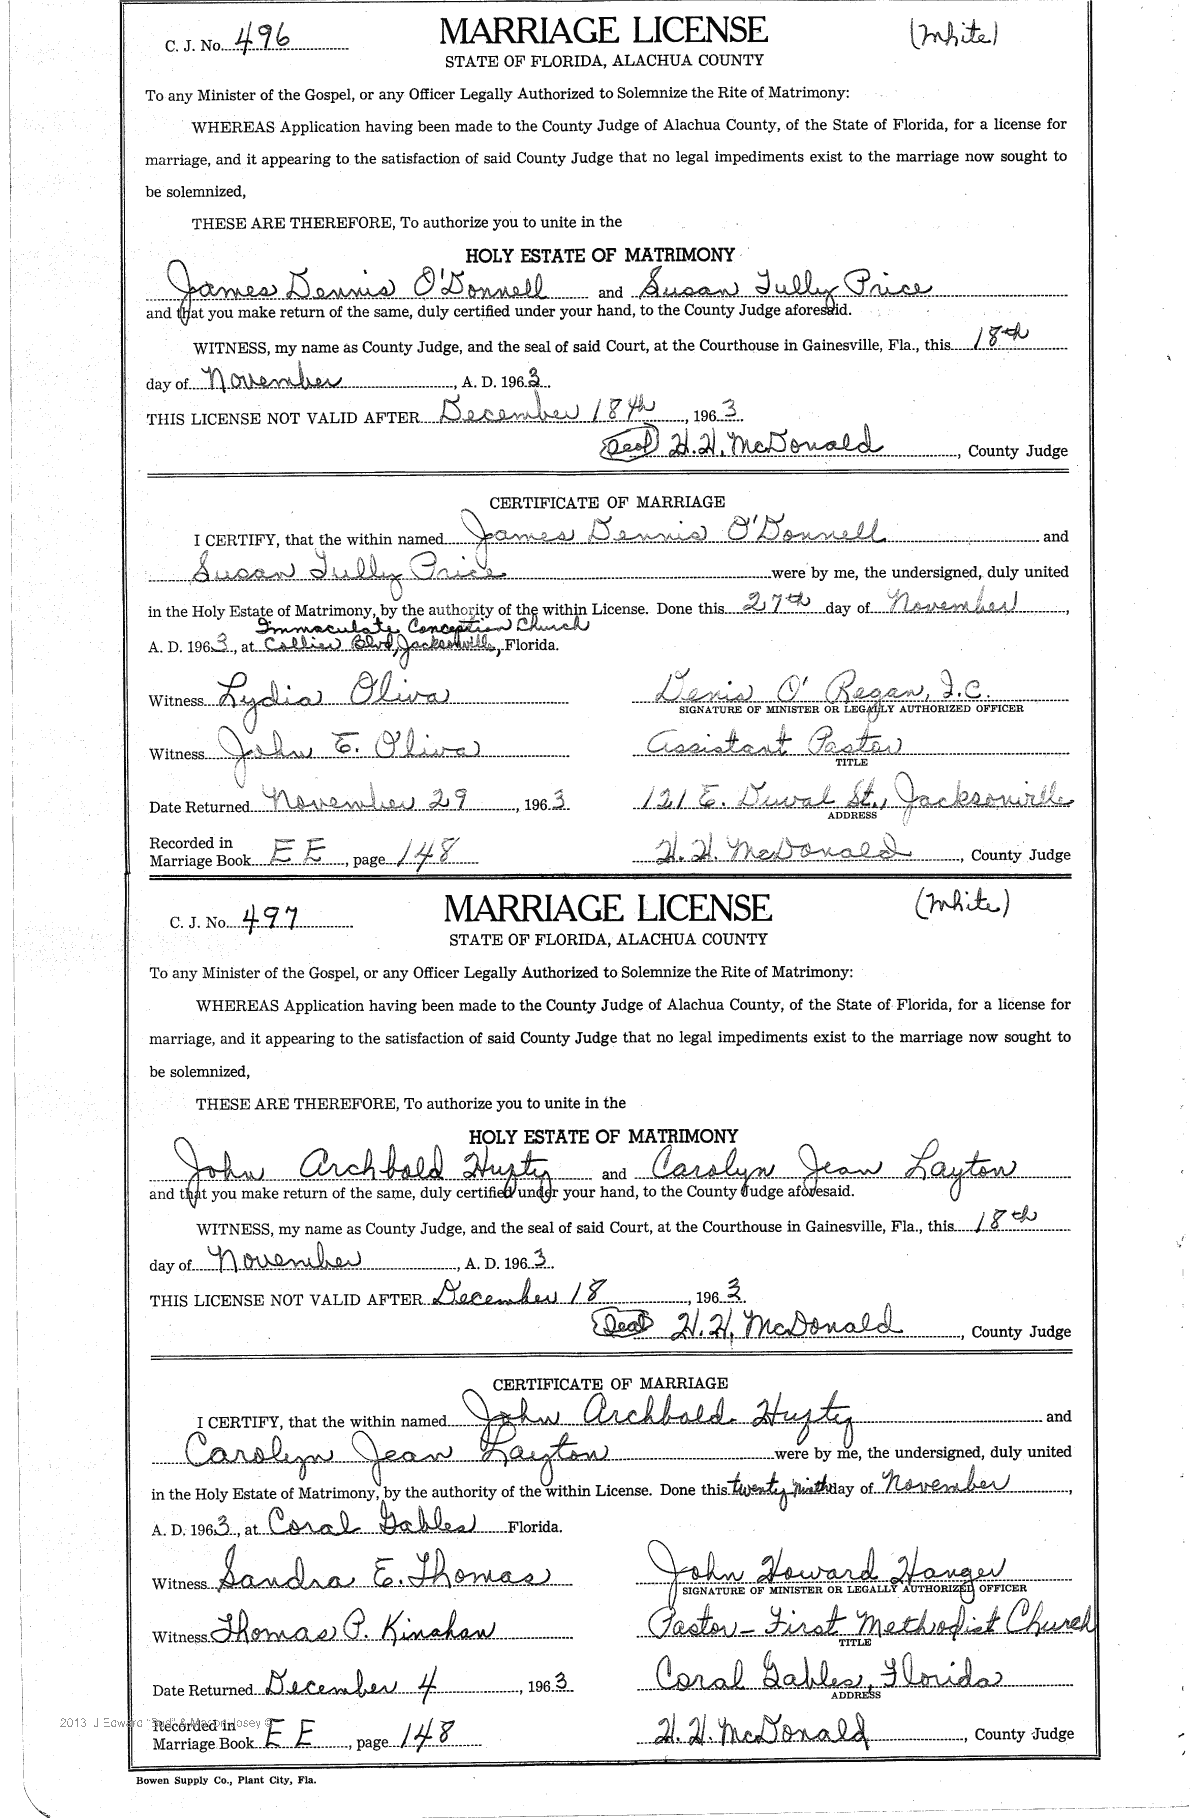 C. J. No. 496
MARRIAGE LICENSE
(White)
STATE OF FLORIDA, ALACHUA COUNTY
To any Minister of the Gospel, or any Officer Legally Authorized to Solemnize the Rite of Matrimony:
WHEREAS Application having been made to the County Judge of Alachua County, of the State of Florida, for a license for
marriage, and it appearing to the satisfaction of said County Judge that no legal impediments exist to the marriage now sought to
be solemnized,
THESE ARE THEREFORE, To authorize you to unite in the
HOLY ESTATE OF MATRIMONY
James Dennis O'Donnell and Susan Tully Price
and that you make return of the same, duly certified under your hand, to the County Judge aforesaid.
WITNESS, my name as County Judge, and the seal of said Court, at the Courthouse in Gainesville, Fla., this 18th
day of November, A. D. 1963.
THIS LICENSE NOT VALID AFTER December 18th, 1963.
(Seal) H. H. McDonald, County Judge
CERTIFICATE OF MARRIAGE
I CERTIFY, that the within named James Dennis O'Donnell and
Susan Tully Price were by me, the undersigned, duly united
in the Holy Estate of Matrimony, by the authority of the within License. Done this 27th day of November,
Immaculate Conception Church
A. D. 1963, at Collier Blvd, Jacksonville, Florida.
Witness Lydia Oliva
Denis O' Regan, I.C.
SIGNATURE OF MINISTER OR LEGALLY AUTHORIZED OFFICER
Witness John E. Oliva
Assistant Pastor
TITLE
Date Returned November 29, 1963.
121 E. Duval St., Jacksonville
ADDRESS
Recorded in
Marriage Book EE, page 148
H. H. McDonald, County Judge
C. J. No. 497
MARRIAGE LICENSE
(White)
STATE OF FLORIDA, ALACHUA COUNTY
To any Minister of the Gospel, or any Officer Legally Authorized to Solemnize the Rite of Matrimony:
WHEREAS Application having been made to the County Judge of Alachua County, of the State of Florida, for a license for
marriage, and it appearing to the satisfaction of said County Judge that no legal impediments exist to the marriage now sought to
be solemnized,
THESE ARE THEREFORE, To authorize you to unite in the
HOLY ESTATE OF MATRIMONY
John Archbold Huzty and Carolyn Jean Layton
and that you make return of the same, duly certified under your hand, to the County Judge aforesaid.
WITNESS, my name as County Judge, and the seal of said Court, at the Courthouse in Gainesville, Fla., this 18th
day of November, A. D. 1963.
THIS LICENSE NOT VALID AFTER December 18, 1963.
(Seal) H. H. McDonald, County Judge
CERTIFICATE OF MARRIAGE
I CERTIFY, that the within named John Archbold Huzty and
Carolyn Jean Layton were by me, the undersigned, duly united
in the Holy Estate of Matrimony, by the authority of the within License. Done this twenty ninth day of November,
A. D. 1963, at Coral Gables Florida.
Witness Sandra E. Thomas
John Howard Hanger
SIGNATURE OF MINISTER OR LEGALLY AUTHORIZED OFFICER
Witness Thomas P. Kinahan
Pastor - First Methodist Church
TITLE
Date Returned December 4, 1963
Coral Gables, Florida
ADDRESS
2013 J Edward "Bud" &
Recorded in
Marriage Book EE, page 148
H. H. McDonald, County Judge
Bowen Supply Co., Plant City, Fla.